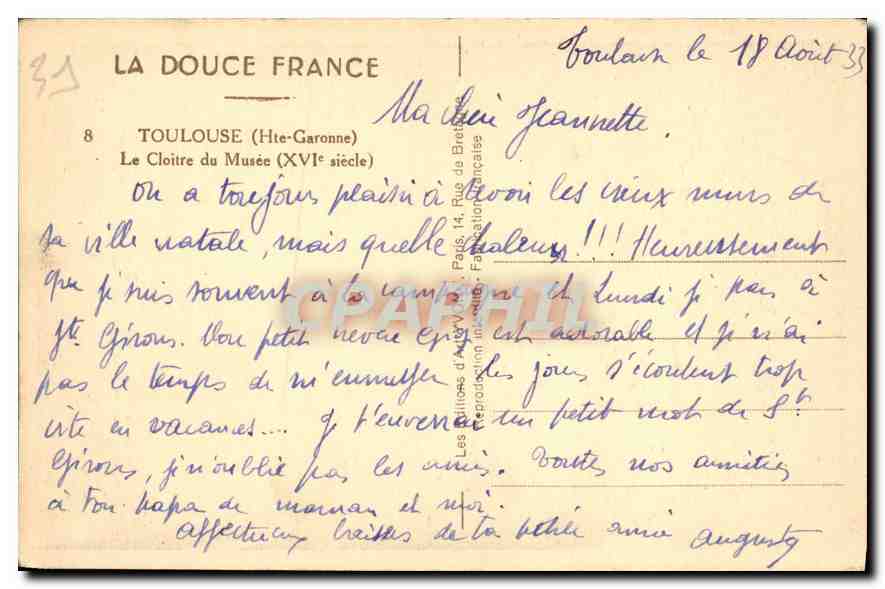 Toulouse le 18 Août 33
39
LA DOUCE FRANCE
Ma chère Jeannette.
8 TOULOUSE (Hte-Garonne)
Le Cloitre du Musée (XVIe siècle)
On a toujours plaisir à revoir les vieux murs de
sa ville natale, mais quelle chaleur!!! Heureusement
que je suis souvent à la campagne et Lundi je pars à
St. Girons. Mon petit neveu est adorable et je n'ai
pas le temps de m'ennuyer les jours s'écoulent trop
vite en vacances.... Je t'enverrai un petit mot de St.
Girons, je n'oublie pas les amis. Toutes nos amitiés
à ton papa de maman et moi.
Affectueux baisers de ta petite amie
Les Editions d'Art YVON, Paris, 14, Rue de Bretagne
Reproduction interdite - Fabrication Française
CPARHIL